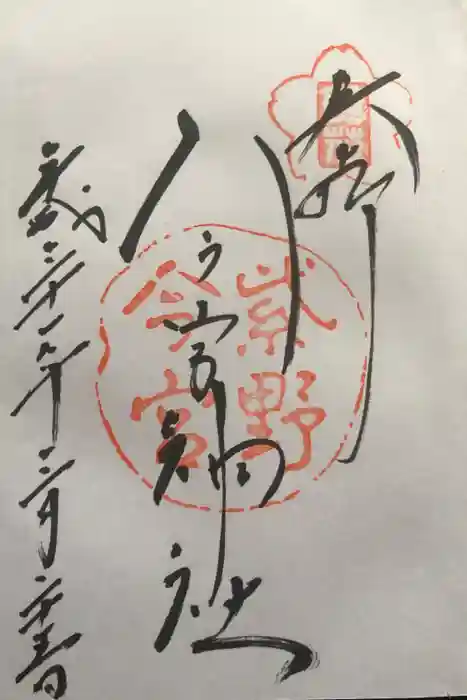 奉拝
今宮神社
平成三十一年三月二十五日
紫野
今宮